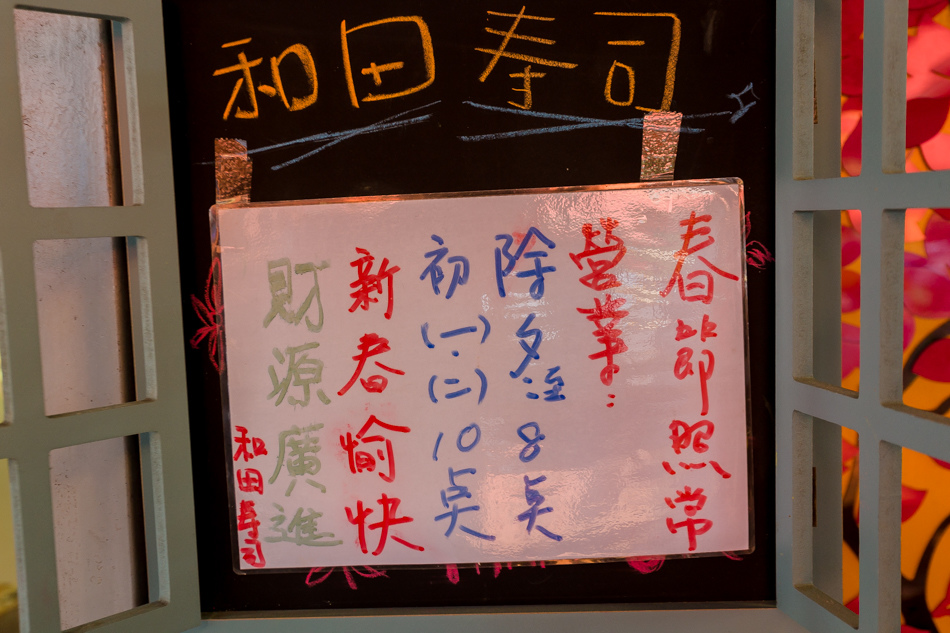 和田寿司
春節照常
營業:
除夕至8点
初(一).(二)10点
新春愉快
財源廣進
和田寿司